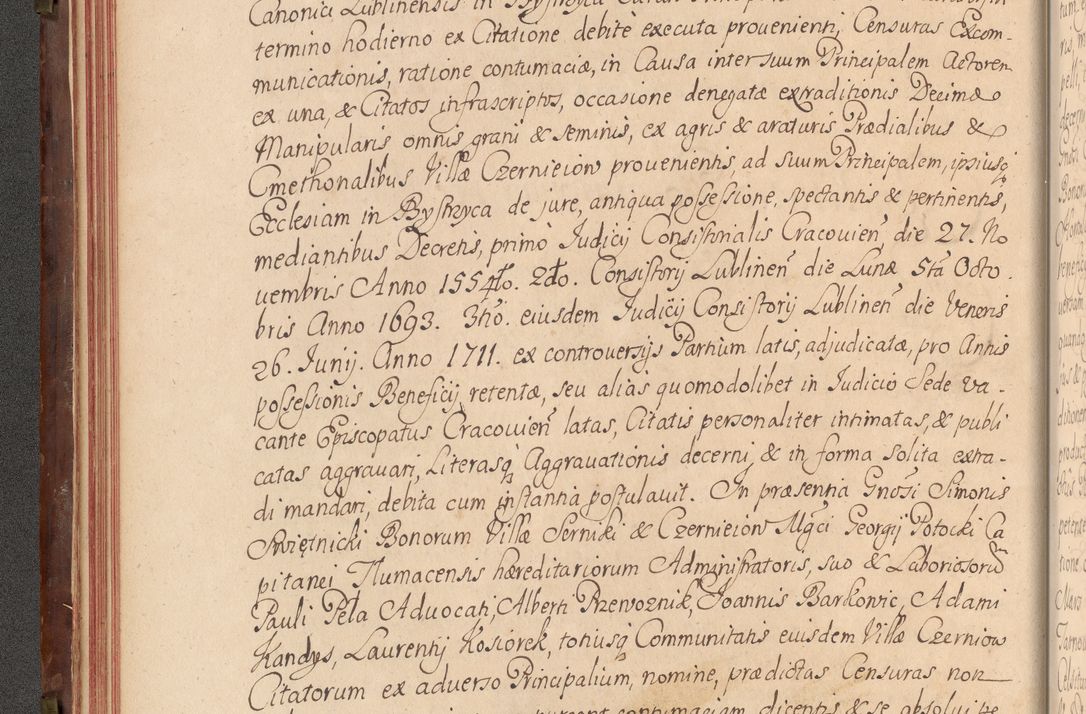 Canonici Lublinensis in Bystrzyca
termino hodierno ex Citatione debite executa prouenienti, Censuras Excom-
municationis, ratione contumaciæ, in Causa inter suum Principalem Actorem
ex una, & Citatos infrascriptos, occasione denegatæ extraditionis Decimæ
Manipularis omnis grani & seminis, ex agris & araturis Prædialibus &
Cmethonalibus Villæ Czernieiow prouenientis, ad suum Principalem, ipsiusq
Ecclesiam in Bystrzyca de jure, antiqua possessione, spectantis & pertinentis,
mediantibus Decretis, primò Judicij Consistorialis Cracouien̄ die 27. No
uembris Anno 1554to. 2do. Consistorij Lublinen̄ die Lunæ 5ta Octo.
bris Anno 1693. 3tiò. eiusdem Judicij Consistorij Lublinen̄ die Veneris
26. Junij. Anno 1711. ex controuersijs Partium latis, adjudicatæ, pro Annis
possessionis Beneficij retentæ, seu alias quomodolibet in Judicio Sede va-
cante Episcopatus Cracouien̄ latas, Citatis personaliter intimatas, & publi
catas aggrauari, Literasq Aggrauationis decerni, & in forma solita extra-
di mandari, debita cum instantia postulauit. In præsentia Gnosi Simonis
Swiętnicki Bonorum Villæ Serniki & Czernieiow Mgci Georgij Potocki Ca
pitanei Tlumacensis hæreditariorum Administratoris, suo & Laboriosorum
Pauli Pela Aduocati, Alberti Przewoznik, Joannis Barkowic, Adami
Kandys, Laurentij Kosiorek, totiusq Communitatis eiusdem Villæ Czerniow
Citatorum ex aduerso Principalium, nomine, prædictas Censuras non
contumaciam dicentis & se absolui pe